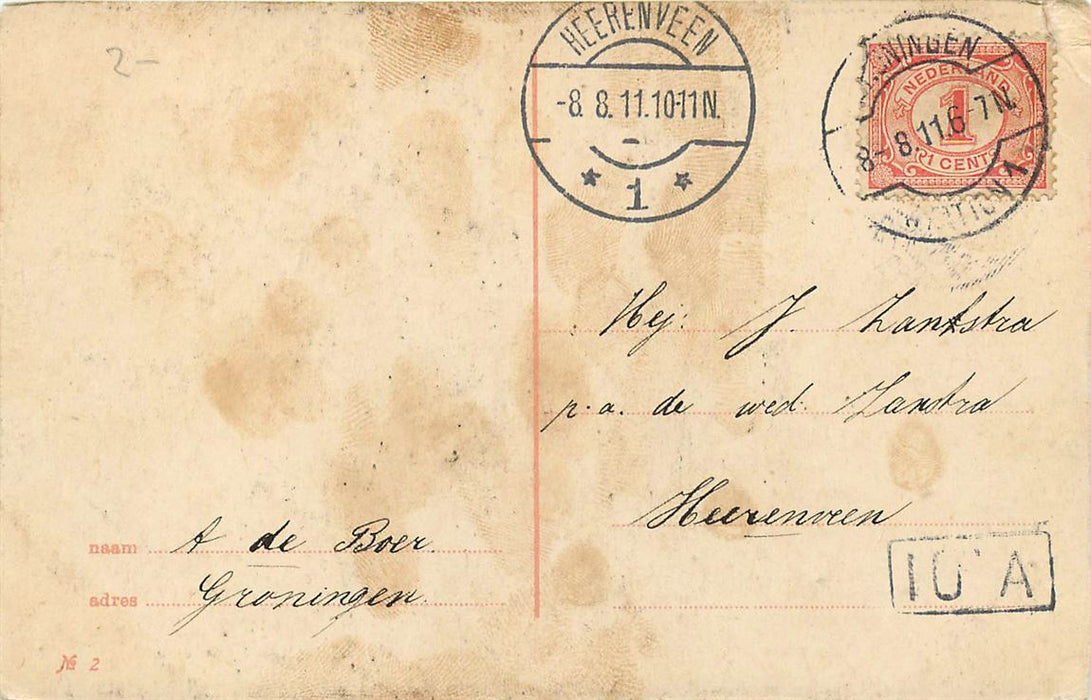 2-
HEERENVEEN
-8. 8. 11.10-11N.
* 1 *
NINGEN
8- 8.11.6-7N.
STATION 1
NEDERLAND
1
1 CENT
Mej. J. Zantstra
p.a. de wed. Zanstra
Heerenveen
naam A de Boer
adres Groningen
10 A
№ 2